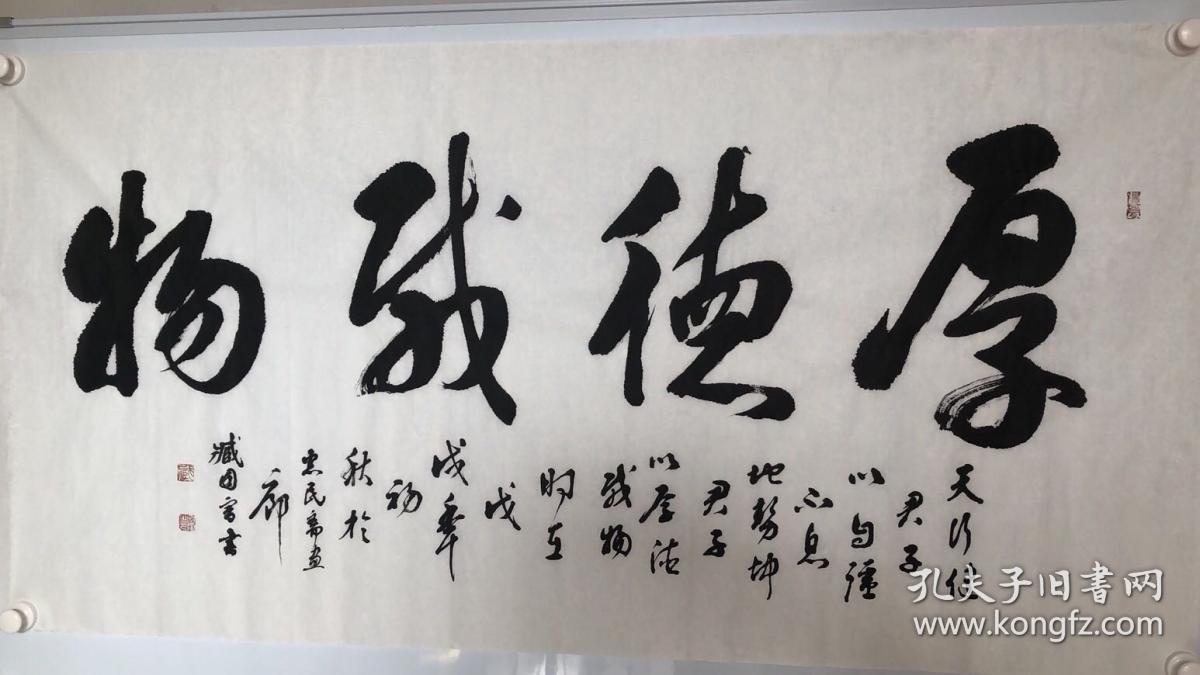 厚德载物
天行健
君子
以自强
不息
地势坤
君子
以厚德
载物
时在
戊
戌年
初
秋于
惠民斋画
廊
臧国書书
孔夫子旧书网
www.kongfz.com